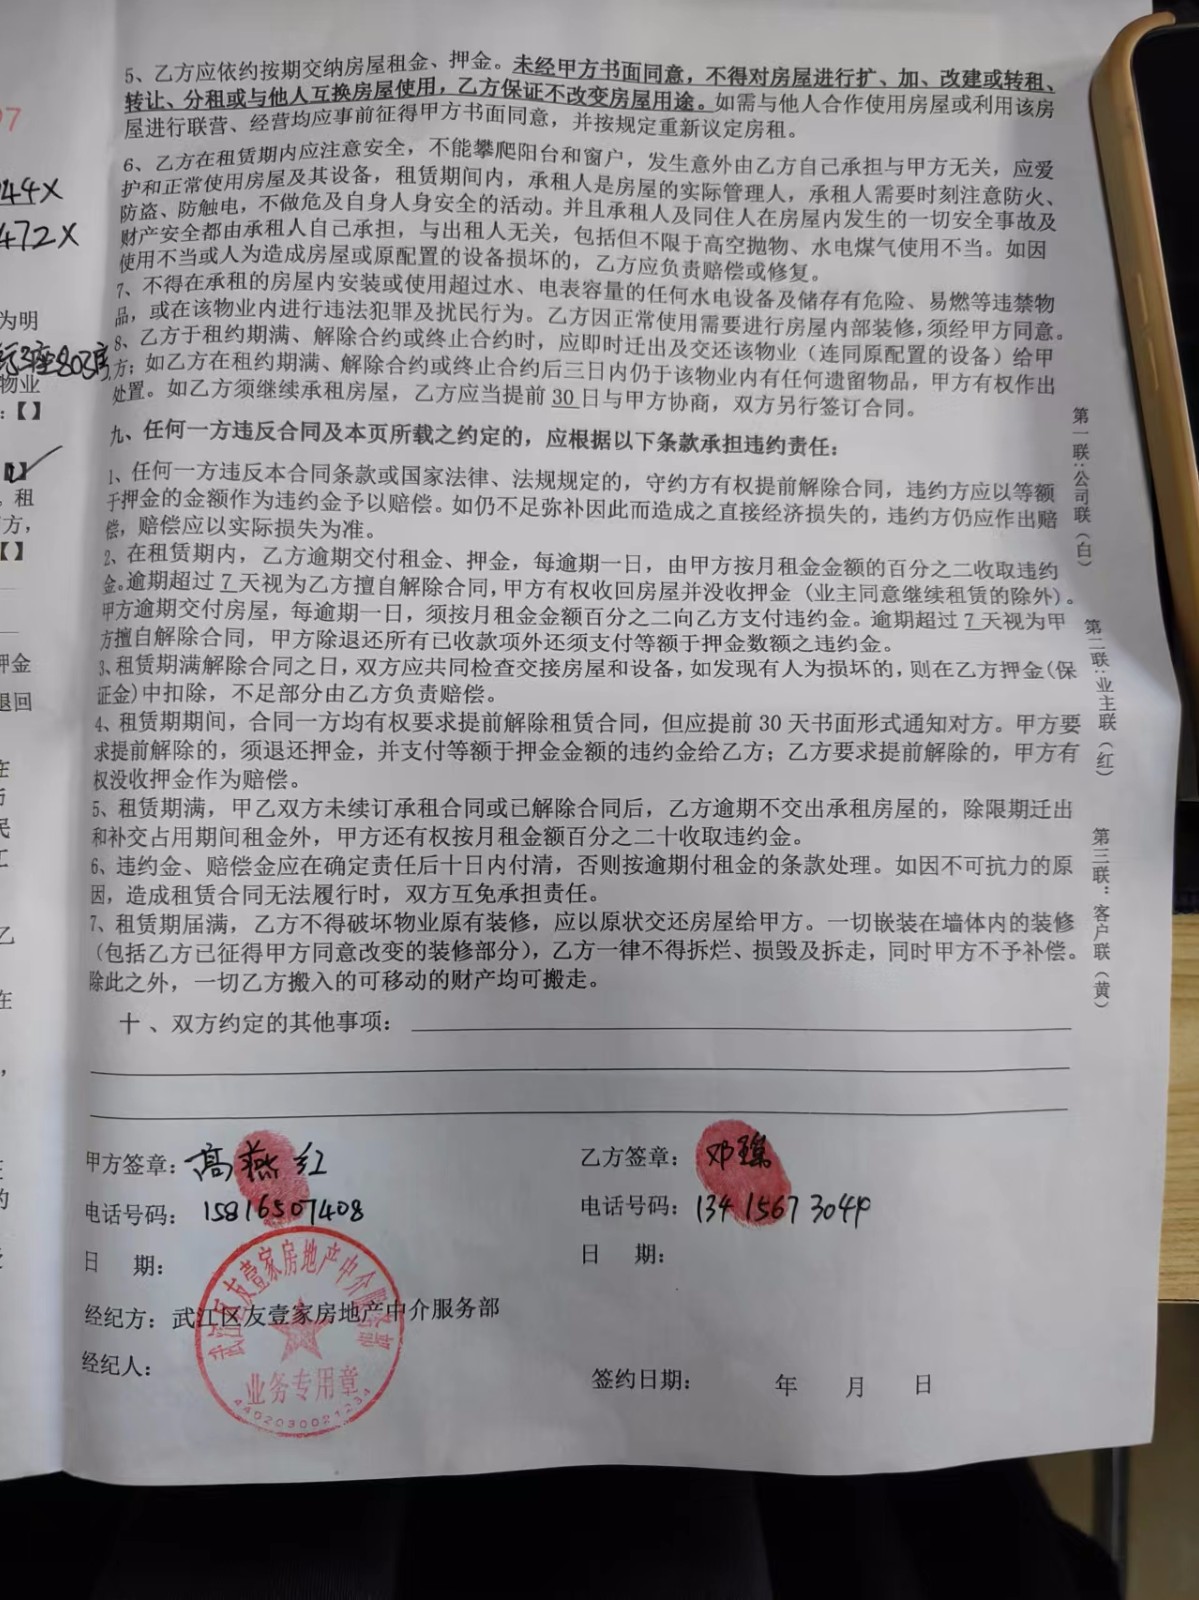 5、乙方应依约按期交纳房屋租金、押金。未经甲方书面同意，不得对房屋进行扩、加、改建或转租、
转让、分租或与他人互换房屋使用，乙方保证不改变房屋用途。如需与他人合作使用房屋或利用该房
屋进行联营、经营均应事前征得甲方书面同意，并按规定重新议定房租。
6、乙方在租赁期内应注意安全，不能攀爬阳台和窗户，发生意外由乙方自己承担与甲方无关，应爱
护和正常使用房屋及其设备，租赁期间内，承租人是房屋的实际管理人，承租人需要时刻注意防火、
防盗、防触电，不做危及自身人身安全的活动。并且承租人及同住人在房屋内发生的一切安全事故及
财产安全都由承租人自己承担，与出租人无关，包括但不限于高空抛物、水电煤气使用不当。如因
使用不当或人为造成房屋或原配置的设备损坏的，乙方应负责赔偿或修复。
7、不得在承租的房屋内安装或使用超过水、电表容量的任何水电设备及储存有危险、易燃等违禁物
品，或在该物业内进行违法犯罪及扰民行为。乙方因正常使用需要进行房屋内部装修，须经甲方同意。
8、乙方于租约期满、解除合约或终止合约时，应即时迁出及交还该物业（连同原配置的设备）给甲
方；如乙方在租约期满、解除合约或终止合约后三日内仍于该物业内有任何遗留物品，甲方有权作出
处置。如乙方须继续承租房屋，乙方应当提前30日与甲方协商，双方另行签订合同。
九、任何一方违反合同及本页所载之约定的，应根据以下条款承担违约责任：
1、任何一方违反本合同条款或国家法律、法规规定的，守约方有权提前解除合同，违约方应以等额
于押金的金额作为违约金予以赔偿。如仍不足弥补因此而造成之直接经济损失的，违约方仍应作出赔
偿，赔偿应以实际损失为准。
2、在租赁期内，乙方逾期交付租金、押金，每逾期一日，由甲方按月租金金额的百分之二收取违约
金。逾期超过7天视为乙方擅自解除合同，甲方有权收回房屋并没收押金（业主同意继续租赁的除外）。
甲方逾期交付房屋，每逾期一日，须按月租金金额百分之二向乙方支付违约金。逾期超过7天视为甲
方擅自解除合同，甲方除退还所有已收款项外还须支付等额于押金数额之违约金。
3、租赁期满解除合同之日，双方应共同检查交接房屋和设备，如发现有人为损坏的，则在乙方押金(保
证金)中扣除，不足部分由乙方负责赔偿。
4、租赁期期间，合同一方均有权要求提前解除租赁合同，但应提前30天书面形式通知对方。甲方要
求提前解除的，须退还押金，并支付等额于押金金额的违约金给乙方；乙方要求提前解除的，甲方有
权没收押金作为赔偿。
5、租赁期满，甲乙双方未续订承租合同或已解除合同后，乙方逾期不交出承租房屋的，除限期迁出
和补交占用期间租金外，甲方还有权按月租金额百分之二十收取违约金。
6、违约金、赔偿金应在确定责任后十日内付清，否则按逾期付租金的条款处理。如因不可抗力的原
因，造成租赁合同无法履行时，双方互免承担责任。
7、租赁期届满，乙方不得破坏物业原有装修，应以原状交还房屋给甲方。一切嵌装在墙体内的装修
(包括乙方已征得甲方同意改变的装修部分)，乙方一律不得拆烂、损毁及拆走，同时甲方不予补偿。
除此之外，一切乙方搬入的可移动的财产均可搬走。
十、双方约定的其他事项：
甲方签章：高燕红
乙方签章：邓
电话号码：15816507408
电话号码：
日 期：
日 期：
经纪方：武江区友壹家房地产中介服务部
经纪人：
签约日期： 年 月 日
武江区友壹家房地产中介服务部
业务专用章
第一联：公司联（白）
第二联：业主联（红）
第三联：客户联（黄）
97
44X
472X
为明
座803房
物业
：【】
租
方，
【】
押金
退回
在
民
工
乙
在
的